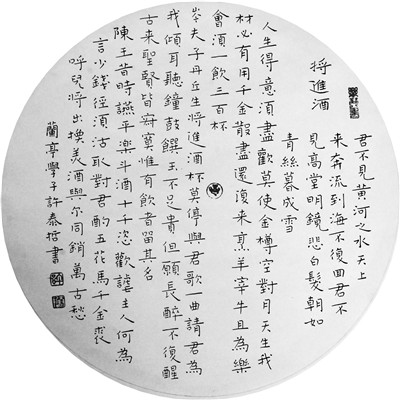 將進酒
君不見黃河之水天上
來奔流到海不復回君不
見高堂明鏡悲白髮朝如
青絲暮成雪
人生得意須盡歡莫使金樽空對月天生我
材必有用千金散盡還復來烹羊宰牛且為樂
會須一飲三百杯
岑夫子丹丘生將進酒杯莫停與君歌一曲請君為
我傾耳聽鐘鼓饌玉不足貴但願長醉不復醒
古來聖賢皆寂寞惟有飲者留其名
陳王昔時讌平樂斗酒十千恣歡謔主人何為
言少錢徑須沽取對君酌五花馬千金裘
呼兒將出換美酒與爾同銷萬古愁
蘭亭學子許泰哲書